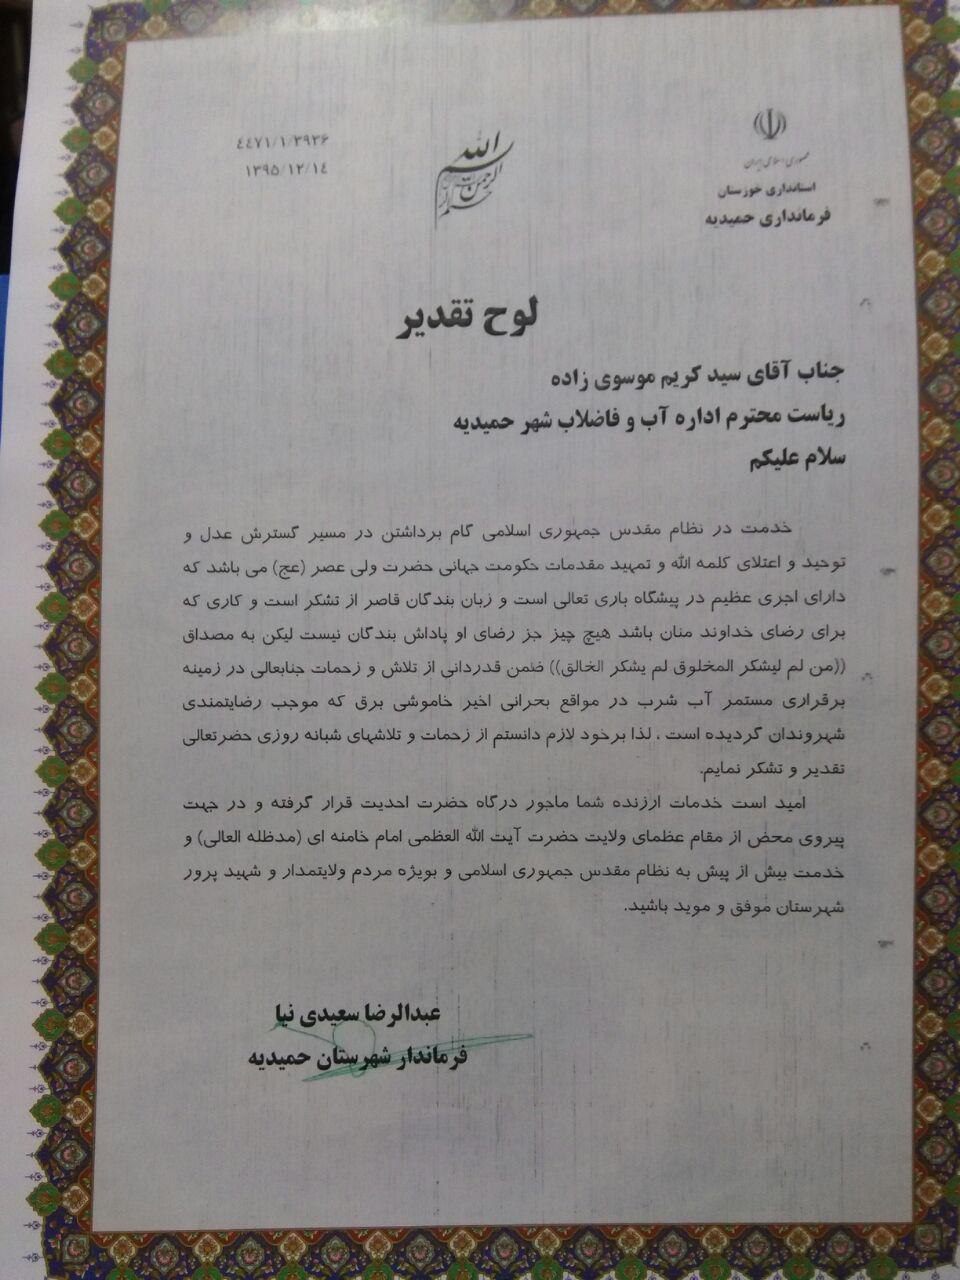 جمهوری اسلامی ایران
استانداری خوزستان
فرمانداری حمیدیه
٤٤٧١/١/٣٩٣۶
١٣٩۵/١٢/١٤
لوح تقدیر
جناب آقای سید کریم موسوی زاده
ریاست محترم اداره آب و فاضلاب شهر حمیدیه
سلام علیکم
خدمت در نظام مقدس جمهوری اسلامی گام برداشتن در مسیر گسترش عدل و
توحید و اعتلای کلمه الله و تمهید مقدمات حکومت جهانی حضرت ولی عصر (عج) می باشد که
دارای اجری عظیم در پیشگاه باری تعالی است و زبان بندگان قاصر از تشکر است و کاری که
برای رضای خداوند منان باشد هیچ چیز جز رضای او پاداش بندگان نیست لیکن به مصداق
((من لم لیشکر المخلوق لم یشکر الخالق)) ضمن قدردانی از تلاش و زحمات جنابعالی در زمینه
برقراری مستمر آب شرب در مواقع بحرانی اخیر خاموشی برق که موجب رضایتمندی
شهروندان گردیده است ، لذا برخود لازم دانستم از زحمات و تلاشهای شبانه روزی حضرتعالی
تقدیر و تشکر نمایم.
امید است خدمات ارزنده شما ماجور درگاه حضرت احدیت قرار گرفته و در جهت
پیروی محض از مقام عظمای ولایت حضرت آیت الله العظمی امام خامنه ای (مدظله العالی) و
خدمت بیش از پیش به نظام مقدس جمهوری اسلامی و بویژه مردم ولایتمدار و شهید پرور
شهرستان موفق و موید باشید.
عبدالرضا سعیدی نیا
فرماندار شهرستان حمیدیه